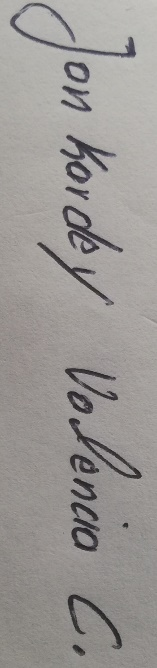 Jon Kardey Valencia C.